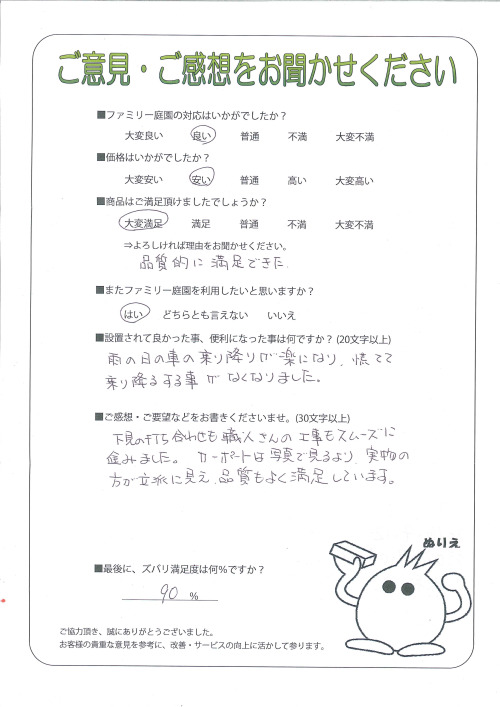 ご意見・ご感想をお聞かせください
■ファミリー庭園の対応はいかがでしたか?
大変良い 良い 普通 不満 大変不満
■価格はいかがでしたか?
大変安い 安い 普通 高い 大変高い
■商品はご満足頂けましたでしょうか?
大変満足 満足 普通 不満 大変不満
⇒よろしければ理由をお聞かせください。
品質的に満足できた.
■またファミリー庭園を利用したいと思いますか?
はい どちらとも言えない いいえ
■設置されて良かった事、便利になった事は何ですか?(20文字以上)
雨の日の車の乗り降りが楽になり、慌てて
乗り降るする事がなくなりました。
■ご感想・ご要望などをお書きくださいませ。(30文字以上)
下見の打ち合わせも職人さんの工事もスムーズに
進みました。 カーポートは写真で見るより、実物の
方が立派に見え、品質もよく満足しています。
ぬりえ
■最後に、ズバリ満足度は何%ですか?
90 %
ご協力頂き、誠にありがとうございました。
お客様の貴重な意見を参考に、改善・サービスの向上に活かして参ります。